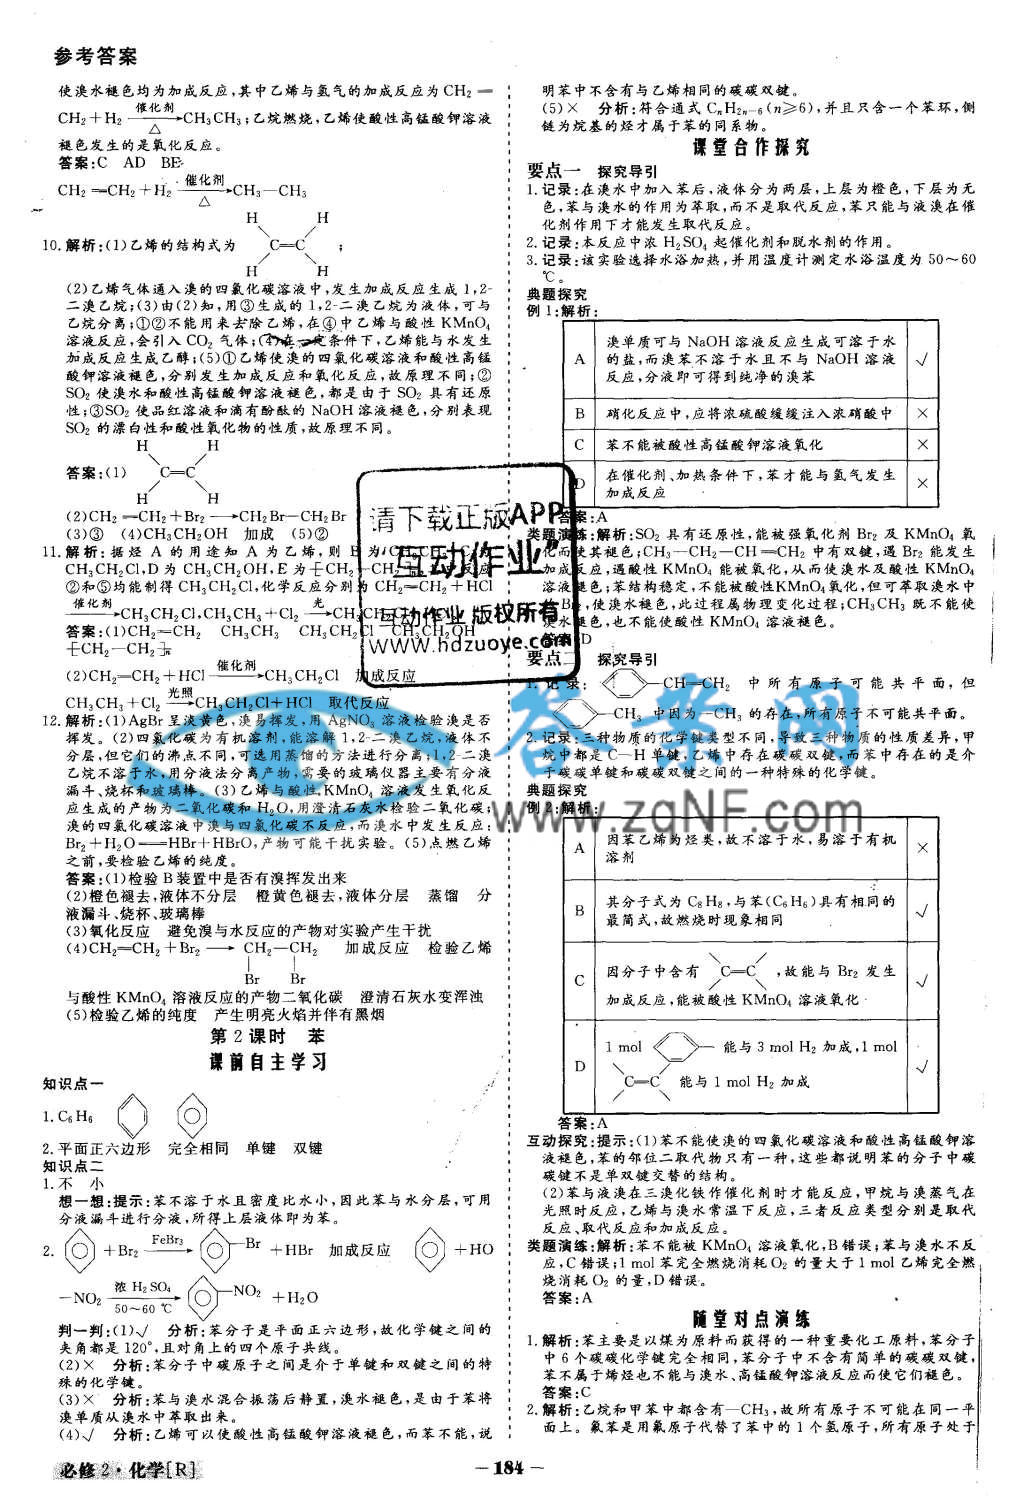 参考答案
使溴水褪色均为加成反应,其中乙烯与氢气的加成反应为CH₂═
CH₂+H₂ 催化剂 △ →CH₃CH₃;乙烷燃烧,乙烯使酸性高锰酸钾溶液
褪色发生的是氧化反应。
答案:C AD BE
CH₂═CH₂+H₂ 催化剂 △ →CH₃—CH₃
H H
10.解析:(1)乙烯的结构式为 C═C ;
H H
(2)乙烯气体通入溴的四氯化碳溶液中,发生加成反应生成1,2-
二溴乙烷;(3)由(2)知,用③生成的1,2-二溴乙烷为液体,可与
乙烷分离;①②不能用来去除乙烯,在④中乙烯与酸性KMnO₄
溶液反应,会引入CO₂气体;(4)在一定条件下,乙烯能与水发生
加成反应生成乙醇;(5)①乙烯使溴的四氯化碳溶液和酸性高锰
酸钾溶液褪色,分别发生加成反应和氧化反应,故原理不同;②
SO₂使溴水和酸性高锰酸钾溶液褪色,都是由于SO₂具有还原
性;③SO₂使品红溶液和滴有酚酞的NaOH溶液褪色,分别表现
SO₂的漂白性和酸性氧化物的性质,故原理不同。
H H
答案:(1) C═C
H H
(2)CH₂═CH₂+Br₂→CH₂Br—CH₂Br
(3)③ (4)CH₃CH₂OH 加成 (5)②
11.解析:据烃A的用途知A为乙烯,则B为CH₃CH₃,C为
CH₃CH₂Cl,D为CH₃CH₂OH,E为
②和⑤均能制得CH₃CH₂Cl,化学反应分别为CH₂═CH₂+HCl
催化剂→CH₃CH₂Cl,CH₃CH₃+Cl₂ 光→
答案:(1)CH₂═CH₂ CH₃CH₃ CH₃CH₂Cl CH₃CH₂OH
⁅CH₂—CH₂⁆n
(2)CH₂═CH₂+HCl 催化剂→CH₃CH₂Cl 加成反应
CH₃CH₃+Cl₂ 光照→CH₃CH₂Cl+HCl 取代反应
12.解析:(1)AgBr呈淡黄色,溴易挥发,用AgNO₃溶液检验溴是否
挥发。(2)四氯化碳为有机溶剂,能溶解1,2-二溴乙烷,液体不
分层,但它们的沸点不同,可选用蒸馏的方法进行分离;1,2-二溴
乙烷不溶于水,用分液法分离产物,需要的玻璃仪器主要有分液
漏斗、烧杯和玻璃棒。(3)乙烯与酸性KMnO₄溶液发生氧化反
应生成的产物为二氧化碳和H₂O,用澄清石灰水检验二氧化碳;
溴的四氯化碳溶液中溴与四氯化碳不反应,而溴水中发生反应:
Br₂+H₂O══HBr+HBrO,产物可能干扰实验。(5)点燃乙烯
之前,要检验乙烯的纯度。
答案:(1)检验B装置中是否有溴挥发出来
(2)橙色褪去,液体不分层 橙黄色褪去,液体分层 蒸馏 分
液漏斗、烧杯、玻璃棒
(3)氧化反应 避免溴与水反应的产物对实验产生干扰
(4)CH₂═CH₂+Br₂→CH₂—CH₂ 加成反应 检验乙烯
Br Br
与酸性KMnO₄溶液反应的产物二氧化碳 澄清石灰水变浑浊
(5)检验乙烯的纯度 产生明亮火焰并伴有黑烟
第2课时 苯
课前自主学习
知识点一
1.C₆H₆
2.平面正六边形 完全相同 单键 双键
知识点二
1.不 小
想一想:提示:苯不溶于水且密度比水小,因此苯与水分层,可用
分液漏斗进行分液,所得上层液体即为苯。
2. +Br₂ FeBr₃→ —Br +HBr 加成反应 +HO
—NO₂ 浓H₂SO₄ 50~60℃ → —NO₂ +H₂O
判一判:(1)√ 分析:苯分子是平面正六边形,故化学键之间的
夹角都是120°,且对角上的四个原子共线。
(2)× 分析:苯分子中碳原子之间是介于单键和双键之间的特
殊的化学键。
(3)× 分析:苯与溴水混合振荡后静置,溴水褪色,是由于苯将
溴单质从溴水中萃取出来。
(4)√ 分析:乙烯可以使酸性高锰酸钾溶液褪色,而苯不能,说
明苯中不含有与乙烯相同的碳碳双键。
(5)× 分析:符合通式CₙH₂ₙ₋₆(n≥6),并且只含一个苯环,侧
链为烷基的烃才属于苯的同系物。
课堂合作探究
要点一 探究导引
1.记录:在溴水中加入苯后,液体分为两层,上层为橙色,下层为无
色,苯与溴水的作用为萃取,而不是取代反应,苯只能与液溴在催
化剂作用下才能发生取代反应。
2.记录:本反应中浓H₂SO₄起催化剂和脱水剂的作用。
3.记录:该实验选择水浴加热,并用温度计测定水浴温度为50~60
℃。
典题探究
例1:解析:
A 溴单质可与NaOH溶液反应生成可溶于水
的盐,而溴苯不溶于水且不与NaOH溶液
反应,分液即可得到纯净的溴苯 √
B 硝化反应中,应将浓硫酸缓缓注入浓硝酸中 ×
C 苯不能被酸性高锰酸钾溶液氧化 ×
D 在催化剂、加热条件下,苯才能与氢气发生
加成反应 ×
答案:A
类题演练:解析:SO₂具有还原性,能被强氧化剂Br₂及KMnO₄氧
化而使其褪色;CH₃—CH₂—CH═CH₂中有双键,遇Br₂能发生
加成反应,遇酸性KMnO₄能被氧化,从而使溴水及酸性KMnO₄
溶液褪色;苯结构稳定,不能被酸性KMnO₄氧化,但可萃取溴水中
Br₂,使溴水褪色,此过程属物理变化过程;CH₃CH₃既不能使
溴水褪色,也不能使酸性KMnO₄溶液褪色。
答案:D
要点二 探究导引
1.记录: —CH═CH₂ 中所有原子可能共平面,但
—CH₃ 中因为—CH₃的存在,所有原子不可能共平面。
2.记录:三种物质的化学键类型不同,导致三种物质的性质差异,甲
烷中都是C—H单键,乙烯中存在碳碳双键,而苯中存在的是介
于碳碳单键和碳碳双键之间的一种特殊的化学键。
典题探究
例2:解析:
A 因苯乙烯为烃类,故不溶于水,易溶于有机
溶剂 ×
B 其分子式为C₈H₈,与苯(C₆H₆)具有相同的
最简式,故燃烧时现象相同 √
C 因分子中含有 C═C ,故能与Br₂发生
加成反应,能被酸性KMnO₄溶液氧化 √
D 1 mol 能与3 mol H₂加成,1 mol
C═C 能与1 mol H₂加成 √
答案:A
互动探究:提示:(1)苯不能使溴的四氯化碳溶液和酸性高锰酸钾溶
液褪色,苯的邻位二取代物只有一种,这些都说明苯的分子中碳
碳键不是单双键交替的结构。
(2)苯与液溴在三溴化铁作催化剂时才能反应,甲烷与溴蒸气在
光照时反应,乙烯与溴水常温下反应,三者反应类型分别是取代
反应、取代反应和加成反应。
类题演练:解析:苯不能被KMnO₄溶液氧化,B错误;苯与溴水不反
应,C错误;1 mol苯完全燃烧消耗O₂的量大于1 mol乙烯完全燃
烧消耗O₂的量,D错误。
答案:A
随堂对点演练
1.解析:苯主要是以煤为原料而获得的一种重要化工原料,苯分子
中6个碳碳化学键完全相同,苯分子中不含有简单的碳碳双键,
苯不属于烯烃也不能与溴水、高锰酸钾溶液反应而使它们褪色。
答案:C
2.解析:乙烷和甲苯中都含有—CH₃,故所有原子不可能在同一平
面上。氟苯是用氟原子代替了苯中的1个氢原子,所有原子处于
请下载正版APP
互动作业
互动作业 版权所有
www.hdzuoye.com
答案网
www.zqNF.com
必修2·化学[R]
—184—